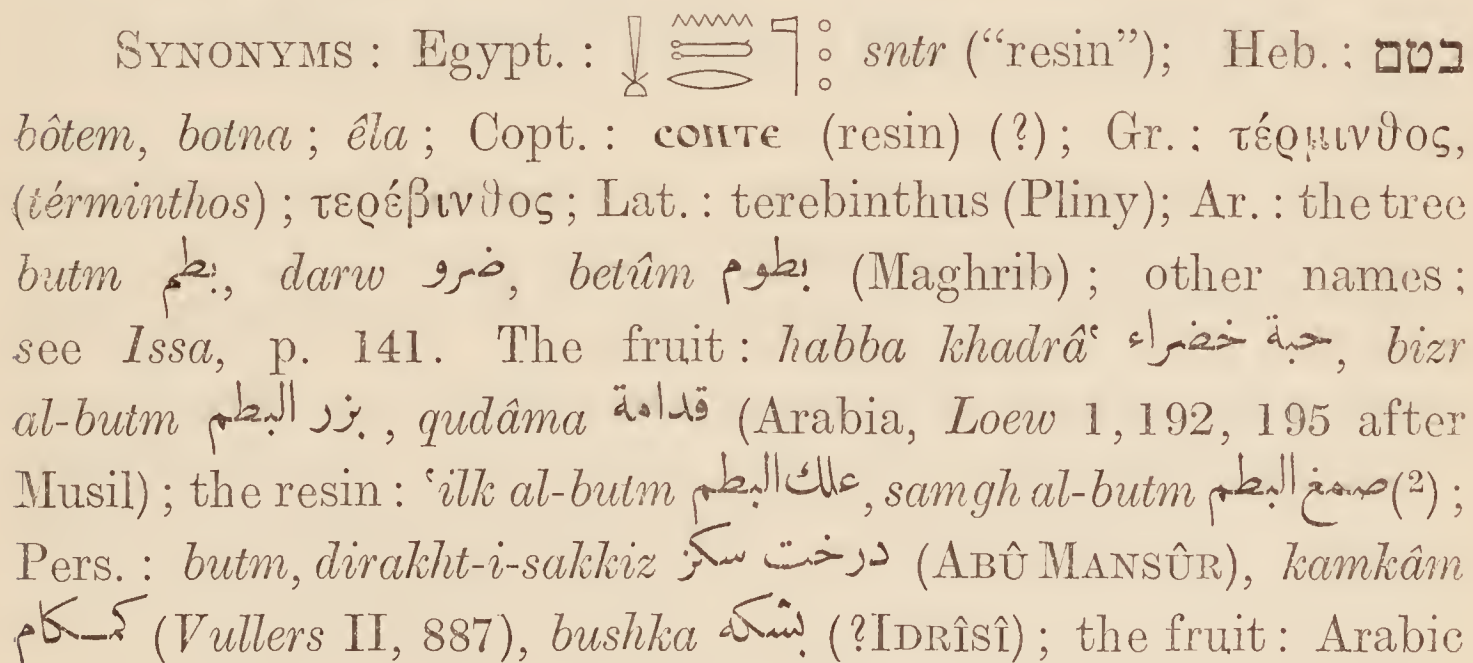 SYNONYMS : Egypt. : 𓊹 sntr (“resin”); Heb. : בטם
bôtem, botna ; êla ; Copt. : ⲥⲟⲛⲧⲉ (resin) (?) ; Gr. : τέρμινθος,
(términthos) ; τερέβινθος ; Lat. : terebinthus (Pliny); Ar. : the tree
butm بطم, darw ضرو, betûm بطوم (Maghrib) ; other names :
see Issa, p. 141. The fruit : habba khadrâʿ حبة خضراء, bizr
al-butm بزر البطم, qudâma قدامة (Arabia, Loew 1, 192, 195 after
Musil) ; the resin : ʿilk al-butm علك البطم, samgh al-butm صمغ البطم(2) ;
Pers. : butm, dirakht-i-sakkiz درخت سكز (ABÛ MANSÛR), kamkâm
كمكام (Vullers II, 887), bushka بشكه (?IDRÎSÎ) ; the fruit : Arabic